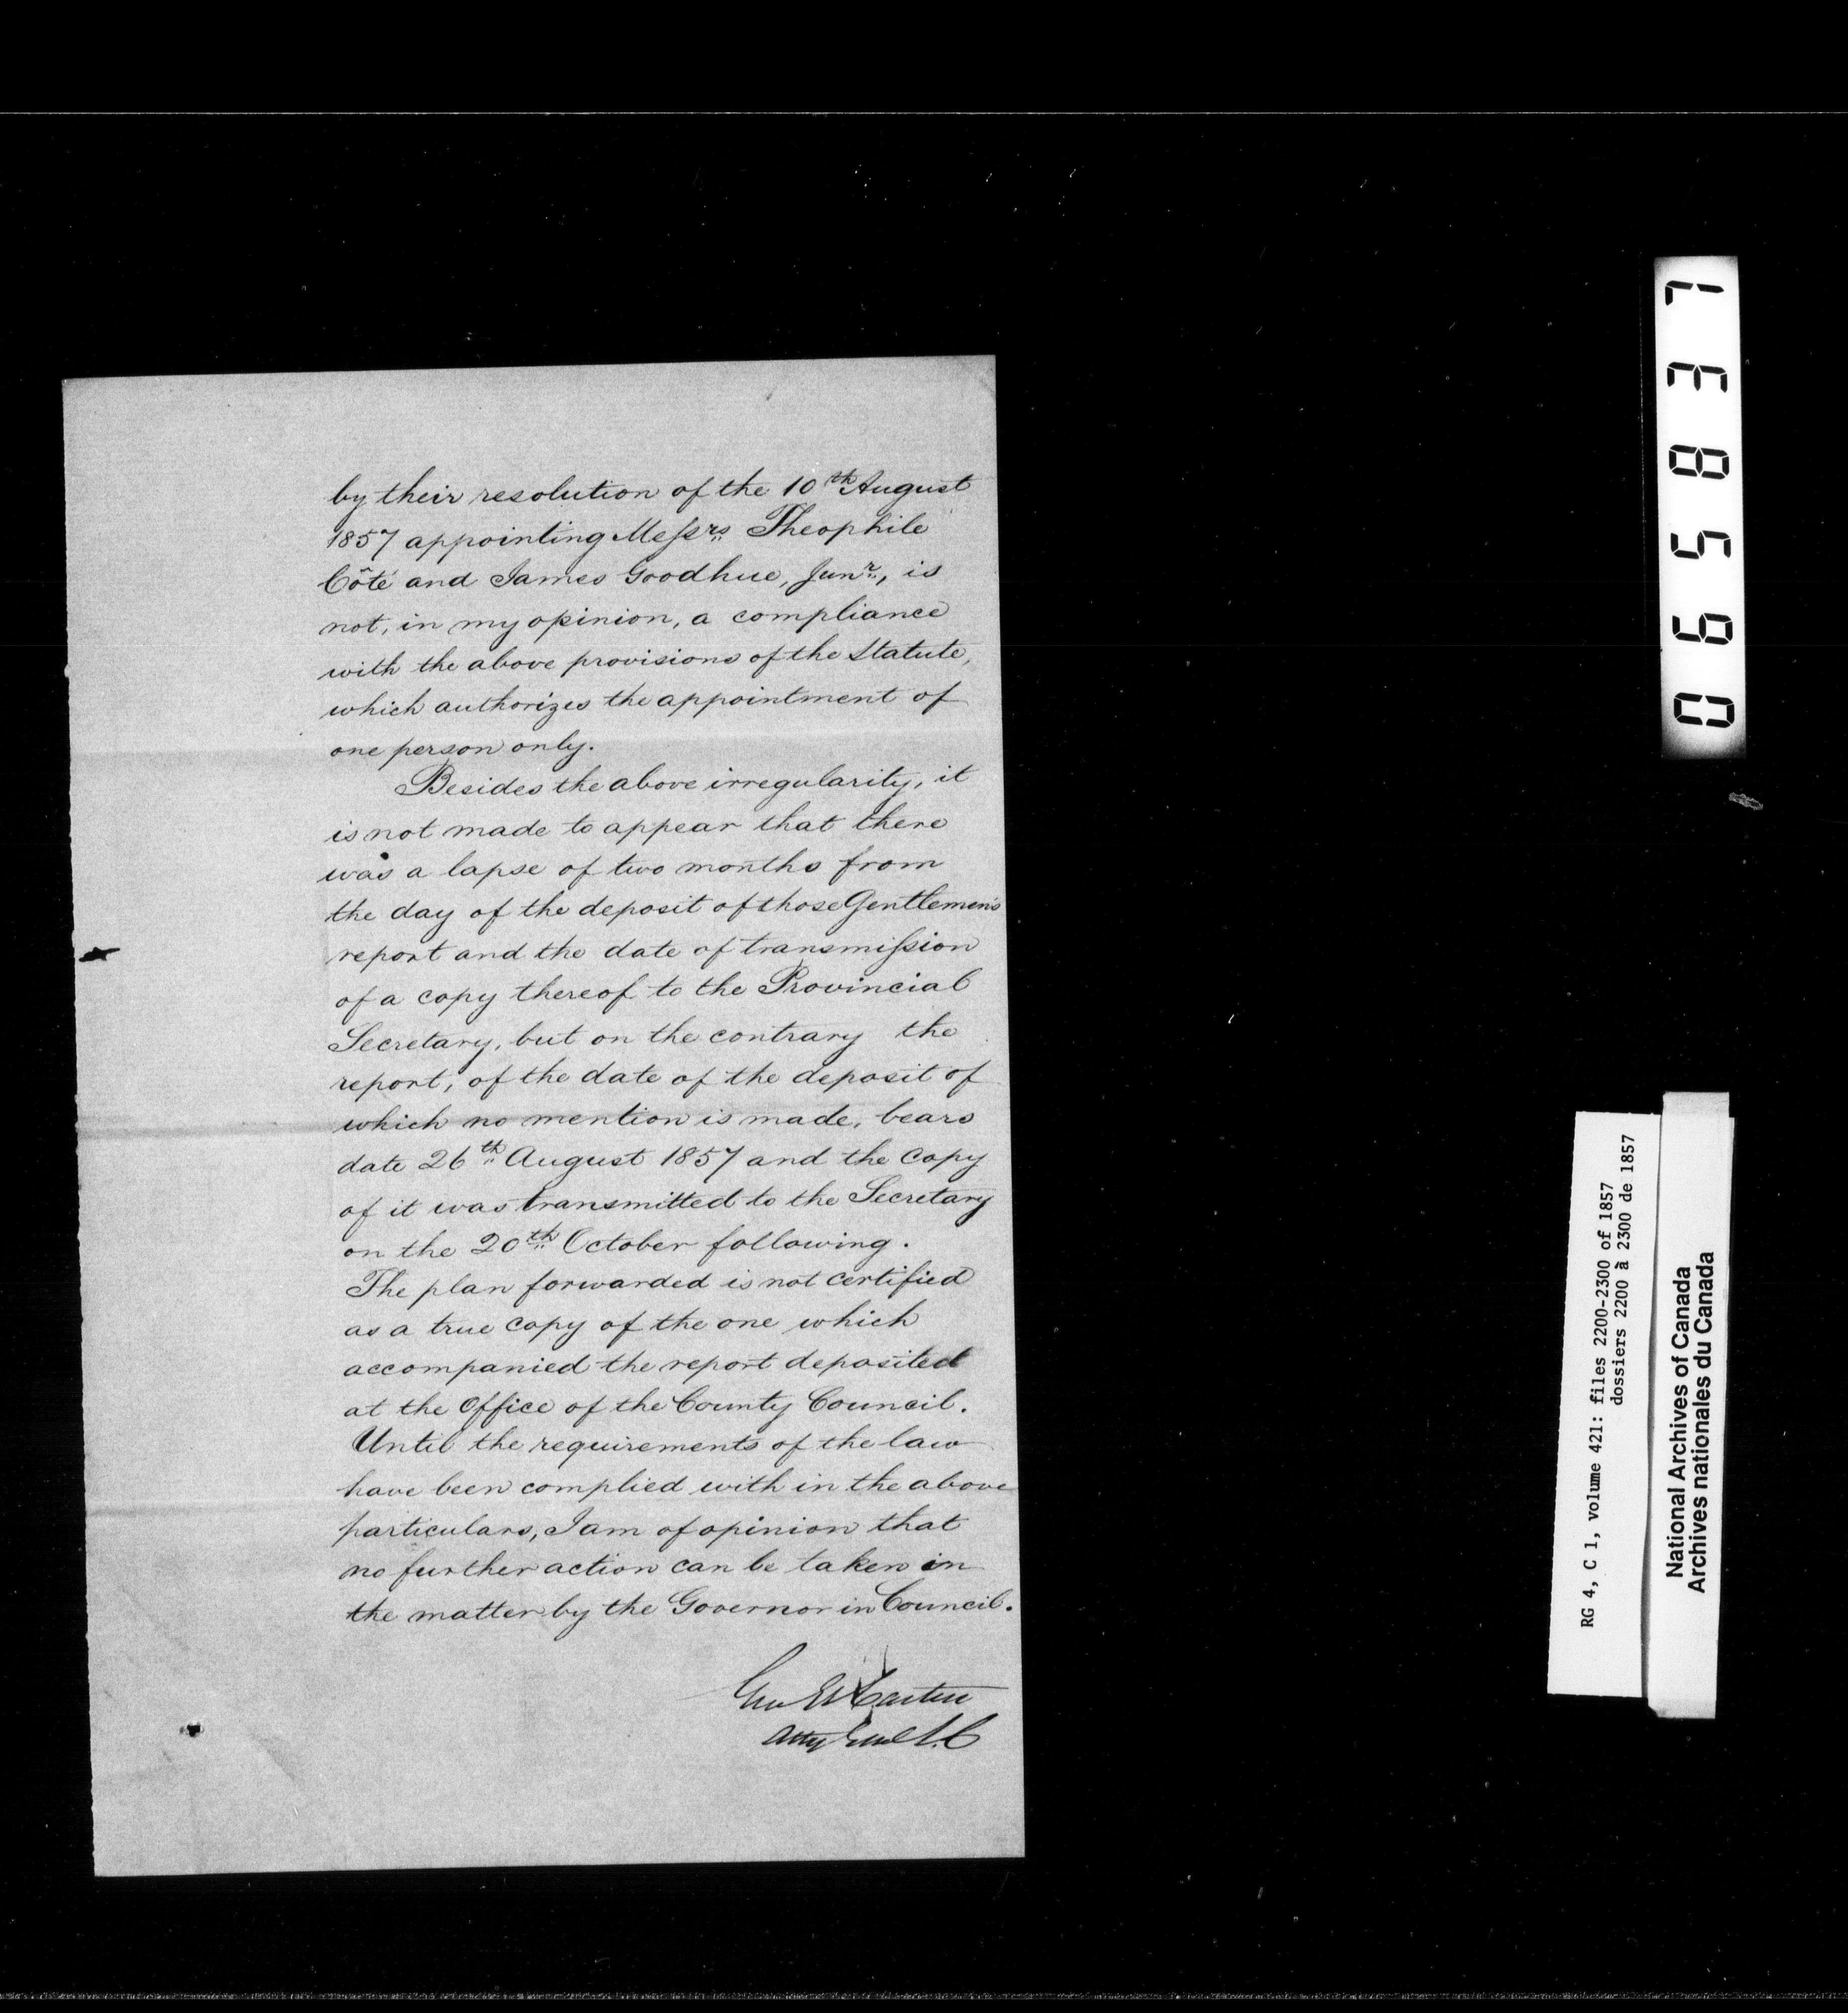 by their resolution of the 10th August
1857 appointing Messrs Theophile
Côté and James Goodhue, Junr, is
not, in my opinion, a compliance
with the above provisions of the Statute,
which authorizes the appointment of
one person only.
Besides the above irregularity, it
is not made to appear that there
was a lapse of two months from
the day of the deposit of those Gentlemen's
report and the date of transmission
of a copy thereof to the Provincial
Secretary, but on the contrary the
report, of the date of the deposit of
which no mention is made, bears
date 26th August 1857 and the copy
of it was transmitted to the Secretary
on the 20th October following.
The plan forwarded is not certified
as a true copy of the one which
accompanied the report deposited
at the Office of the County Council.
Until the requirements of the law
have been complied with in the above
particulars, I am of opinion that
no further action can be taken in
the matter by the Governor in Council.
Geo Et Cartier
Atty Genl L.C
065837
RG 4, C 1, volume 421: files 2200-2300 of 1857
dossiers 2200 à 2300 de 1857
National Archives of Canada
Archives nationales du Canada